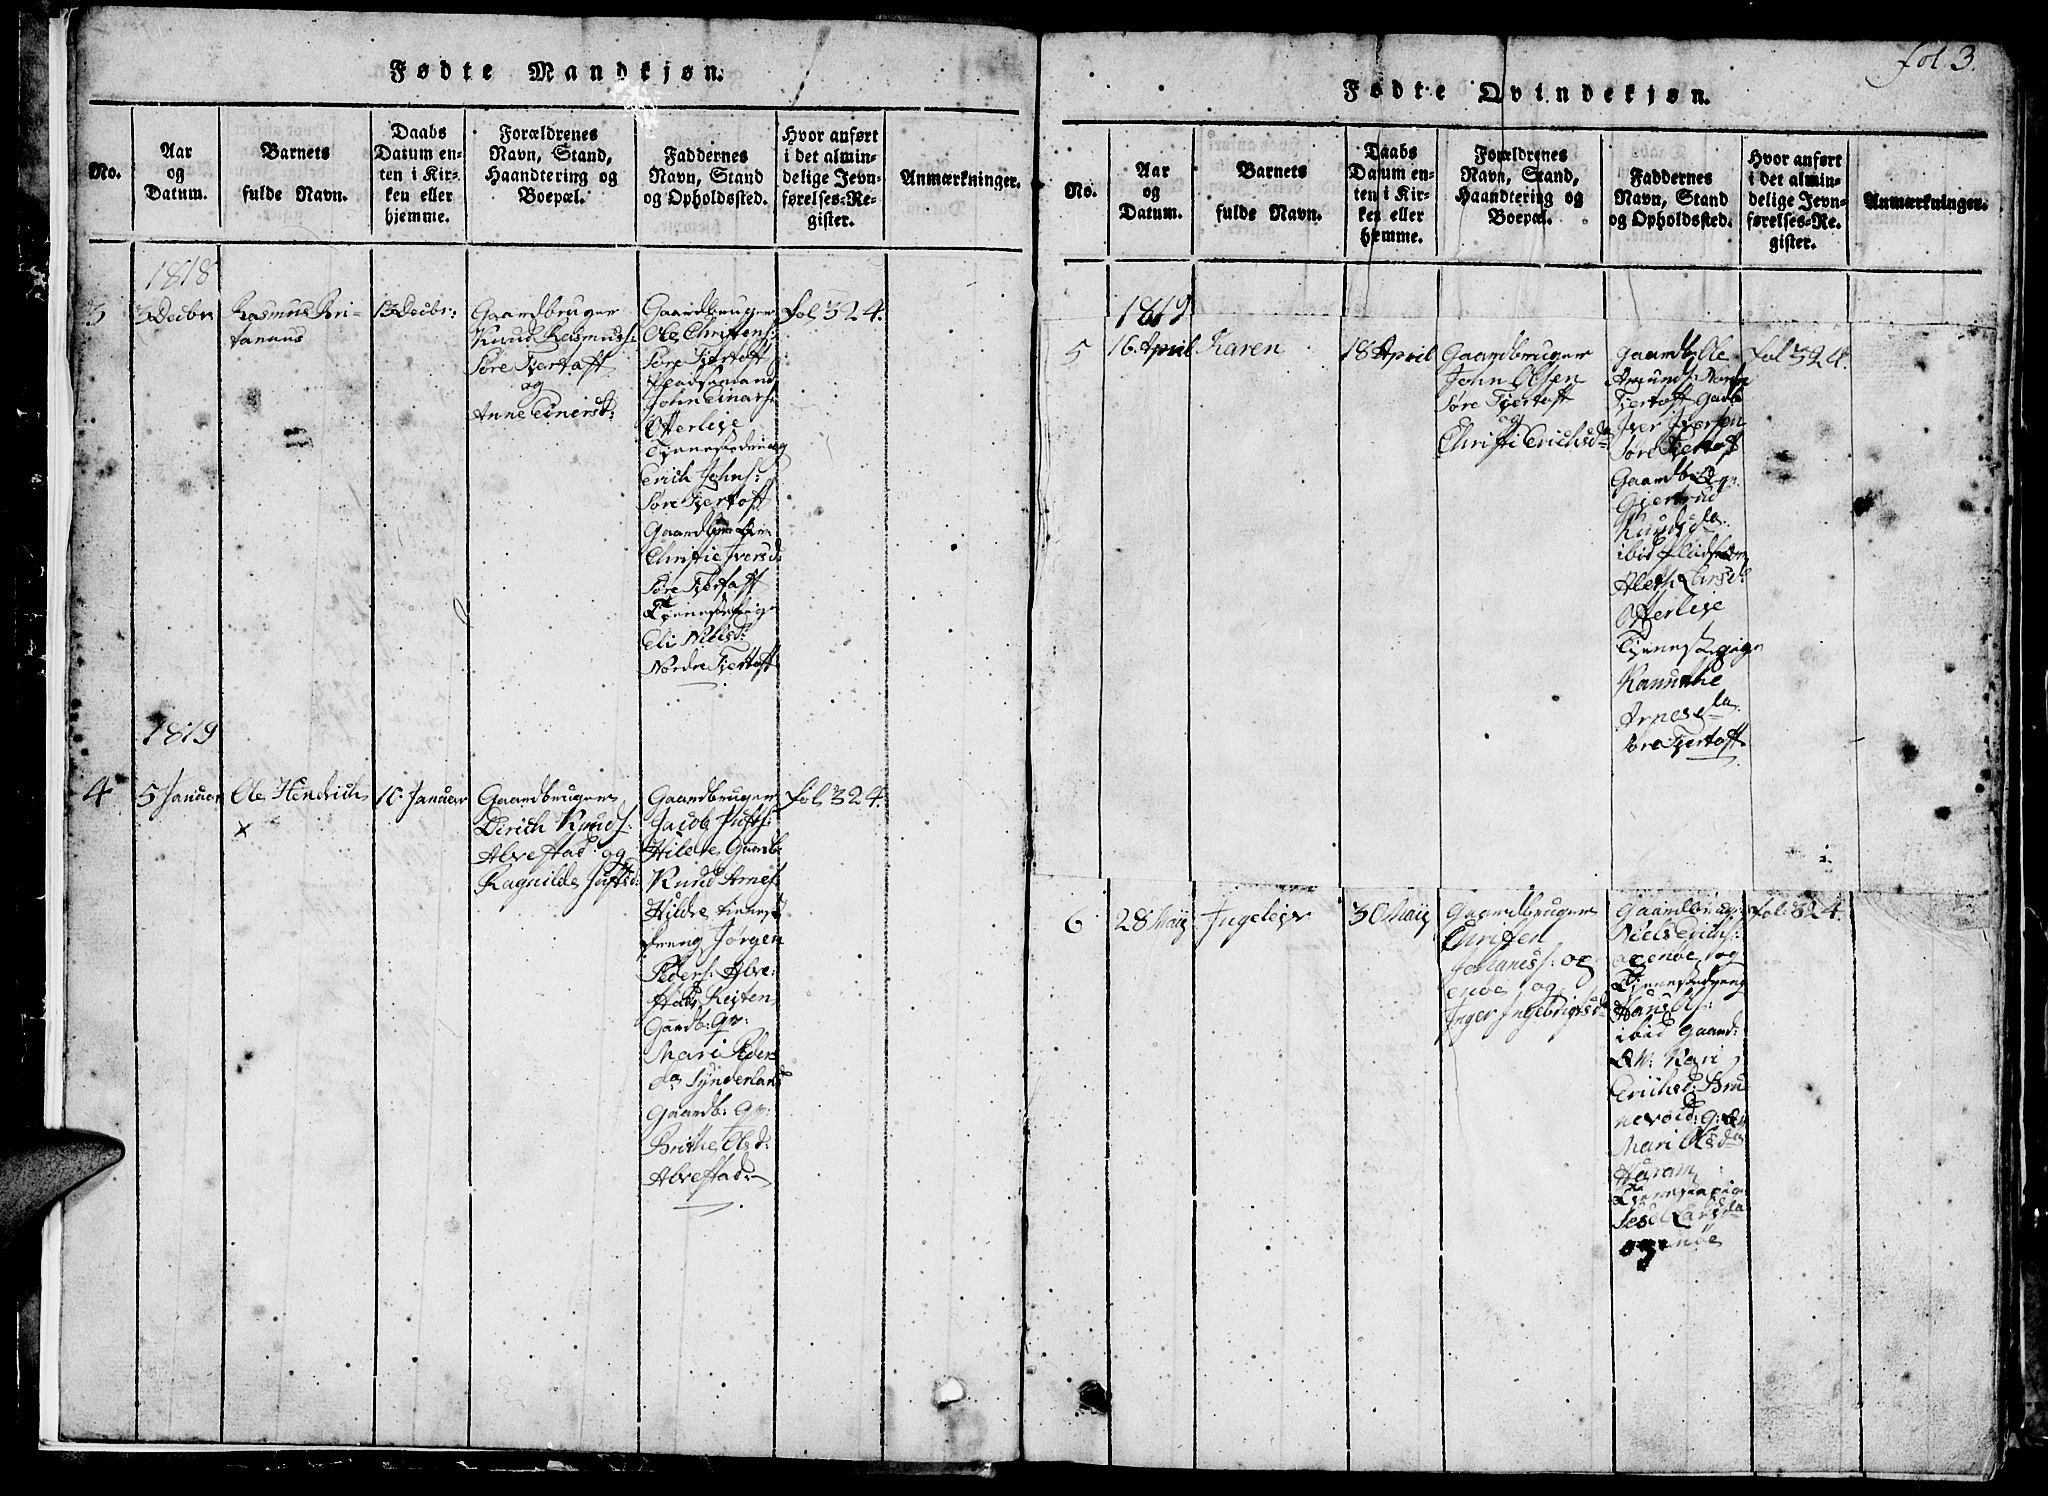 Fødte Mandkjøn.
No.
Aar
og
Datum.
Barnets
fulde Navn.
Daabs
Datum en-
ten i Kir-
ken eller
hjemme.
Forældrenes
Navn, Stand,
Haandtering og
Boepæl.
Faddernes
Navn, Stand
og Opholdssted.
Hvor anført
i det almin-
delige Jevn-
førelses-Re-
gister.
Anmærkninger.
1818
3
3 Decbr
Rasmus Bri-
tanuus
13 Decbr:
Gaardbruger
Knud Rasmuss:
Søre Fjertoft
og
Anne Einersd:
Gaardbruger
Ole Christens:
Søre Fjertoft
Pladsemand
John Einars:
Otterleie
Tjenestedreng
Erich Johns:
Søre Fjertoft
Christie Iversd:
Søre Fjertoft
Eli Nielsd:
Nordre Fjertoft
fol 324.
1819
4
5 Januar
Ole Hendrich
x
10 Januar
Gaardbruger
Dirich Knuds:
Alvestad og
Ragnilde Jestsd:
Gaardbruger
Jacob
Hildre Gaardb:
Knud Arnes:
Hildre tienest
dreng Jørgen
Peders: Alve-
stad
Gaardb: Qv:
Mari Peders
da Synderland
Gaardb: Qv:
Brithe Olsd:
Alvestad
fol 324.
fol 3.
Fødte Qvindekjøn.
No.
Aar
og
Datum.
Barnets
fulde Navn.
Daabs
Datum en-
ten i Kir-
ken eller
hjemme.
Forældrenes
Navn, Stand,
Haandtering og
Boepæl.
Faddernes
Navn, Stand
og Opholdssted.
Hvor anført
i det almin-
delige Jevn-
førelses-Re-
gister.
Anmærkninger.
1819
5
16 April
Karen
18 April
Gaardbruger
John Olsen
Søre Fjertoft
og
Christi Erichsda
Gaardb Ole
Amunds: Nordre
Fjertoft Gaardb
Iver Iversen
Søre Fjertoft
Gaardb Qv:
Giertrud
Knudsda:
ibid
Larsd:
Otterleie
Tjenestepige
Arnesda:
Søre Fjertoft
fol 324.
6
28 Maij
Ingeleiv
30 Maij
Gaardbruger
Christen
Johaness: og-
enøe og
Inger Ingebrigtsd
Gaardbrug:
Niels Erichs:
ogenøe og
Tjenestedreng
Hans Ols:
ibid Gaard:
Qv: Kari
Erichsd: Bru-
nevold: G: Qv
Mari Olsda
Haram
Tjenestepige
Larsda
ogenøe
fol: 324.